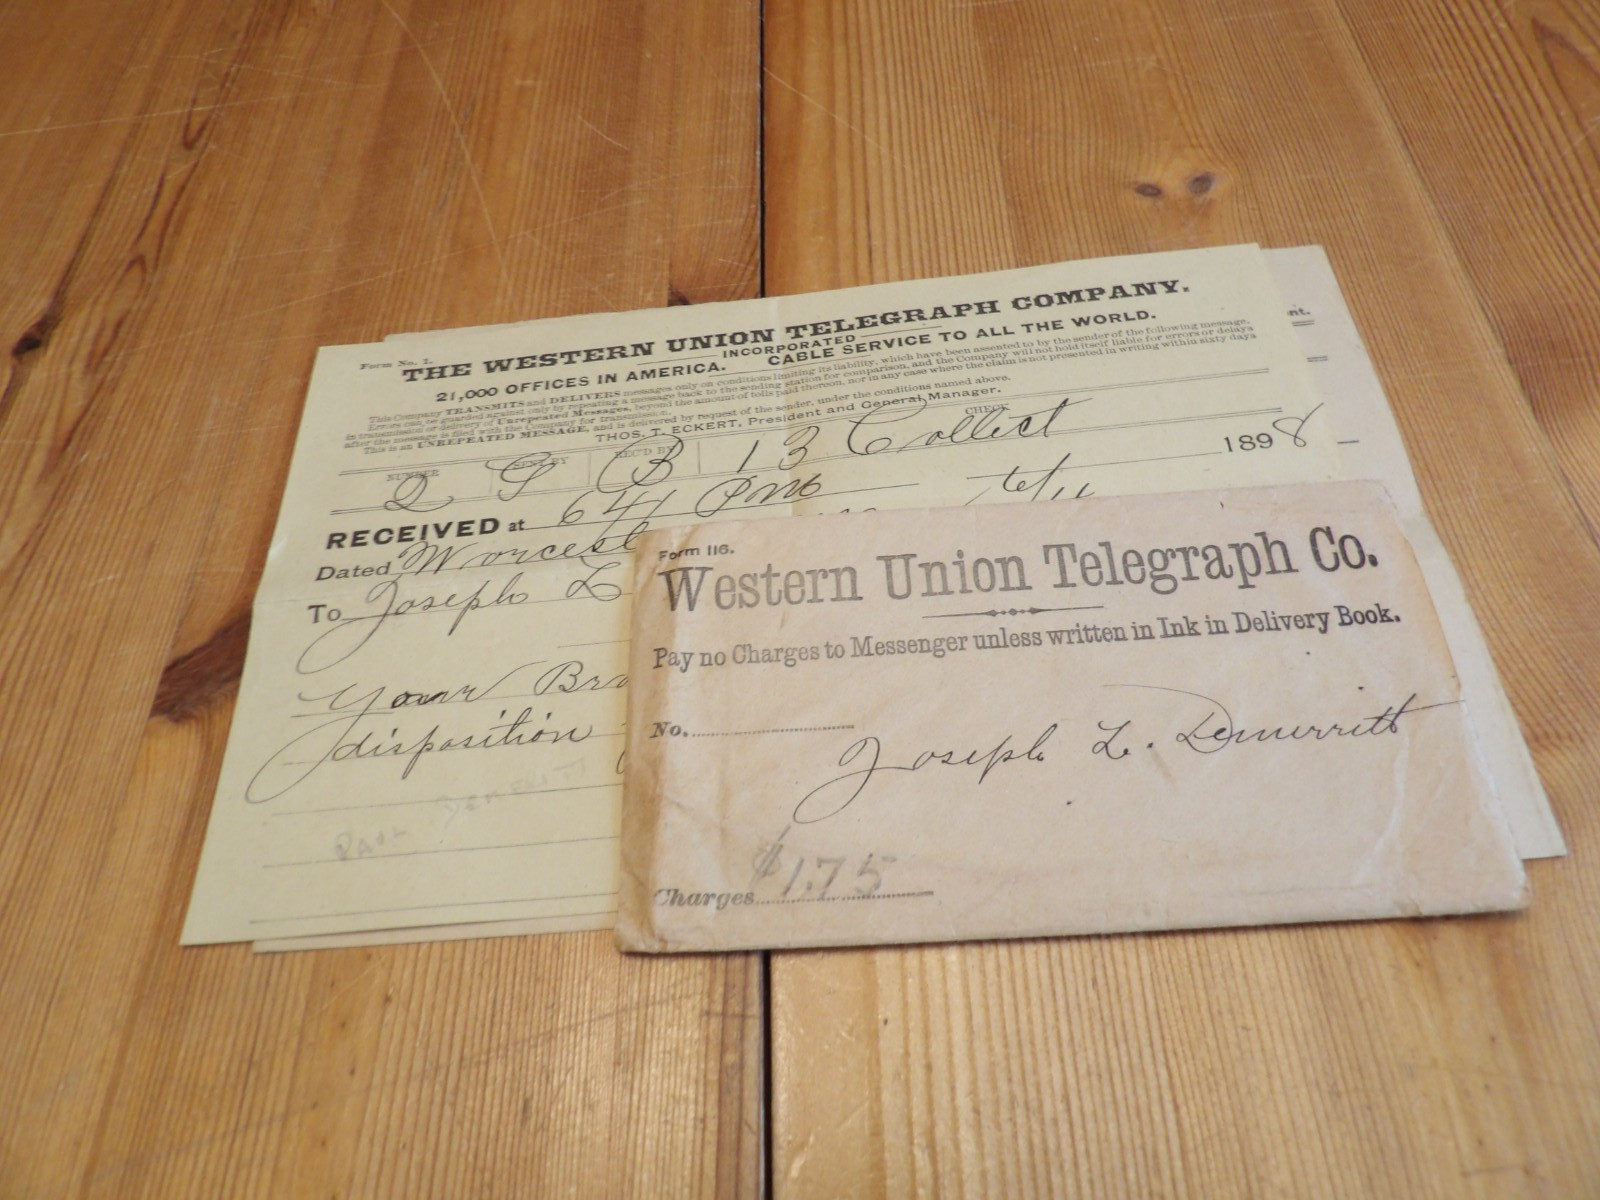 Form No. 1.
THE WESTERN UNION TELEGRAPH COMPANY.
INCORPORATED
21,000 OFFICES IN AMERICA. CABLE SERVICE TO ALL THE WORLD.
This Company TRANSMITS and DELIVERS messages only on conditions limiting its liability, which have been assented to by the sender of the following message.
Errors can be guarded against only by repeating a message back to the sending station for comparison, and the Company will not hold itself liable for errors or delays
in transmission or delivery of Unrepeated Messages, beyond the amount of tolls paid thereon, nor in any case where the claim is not presented in writing within sixty days
after the message is filed with the Company for transmission.
This is an UNREPEATED MESSAGE, and is delivered by request of the sender, under the conditions named above.
THOS. T. ECKERT, President and General Manager.
NUMBER SENT BY REC'D BY CHECK
2 S B 13 Collect
RECEIVED at 641 PM 1898
Dated Worcest 6/11
To Joseph L
Your Bro
disposition
nt.
Form 116.
Western Union Telegraph Co.
Pay no Charges to Messenger unless written in Ink in Delivery Book.
No.
Joseph L. Demerritt
Charges $1.75